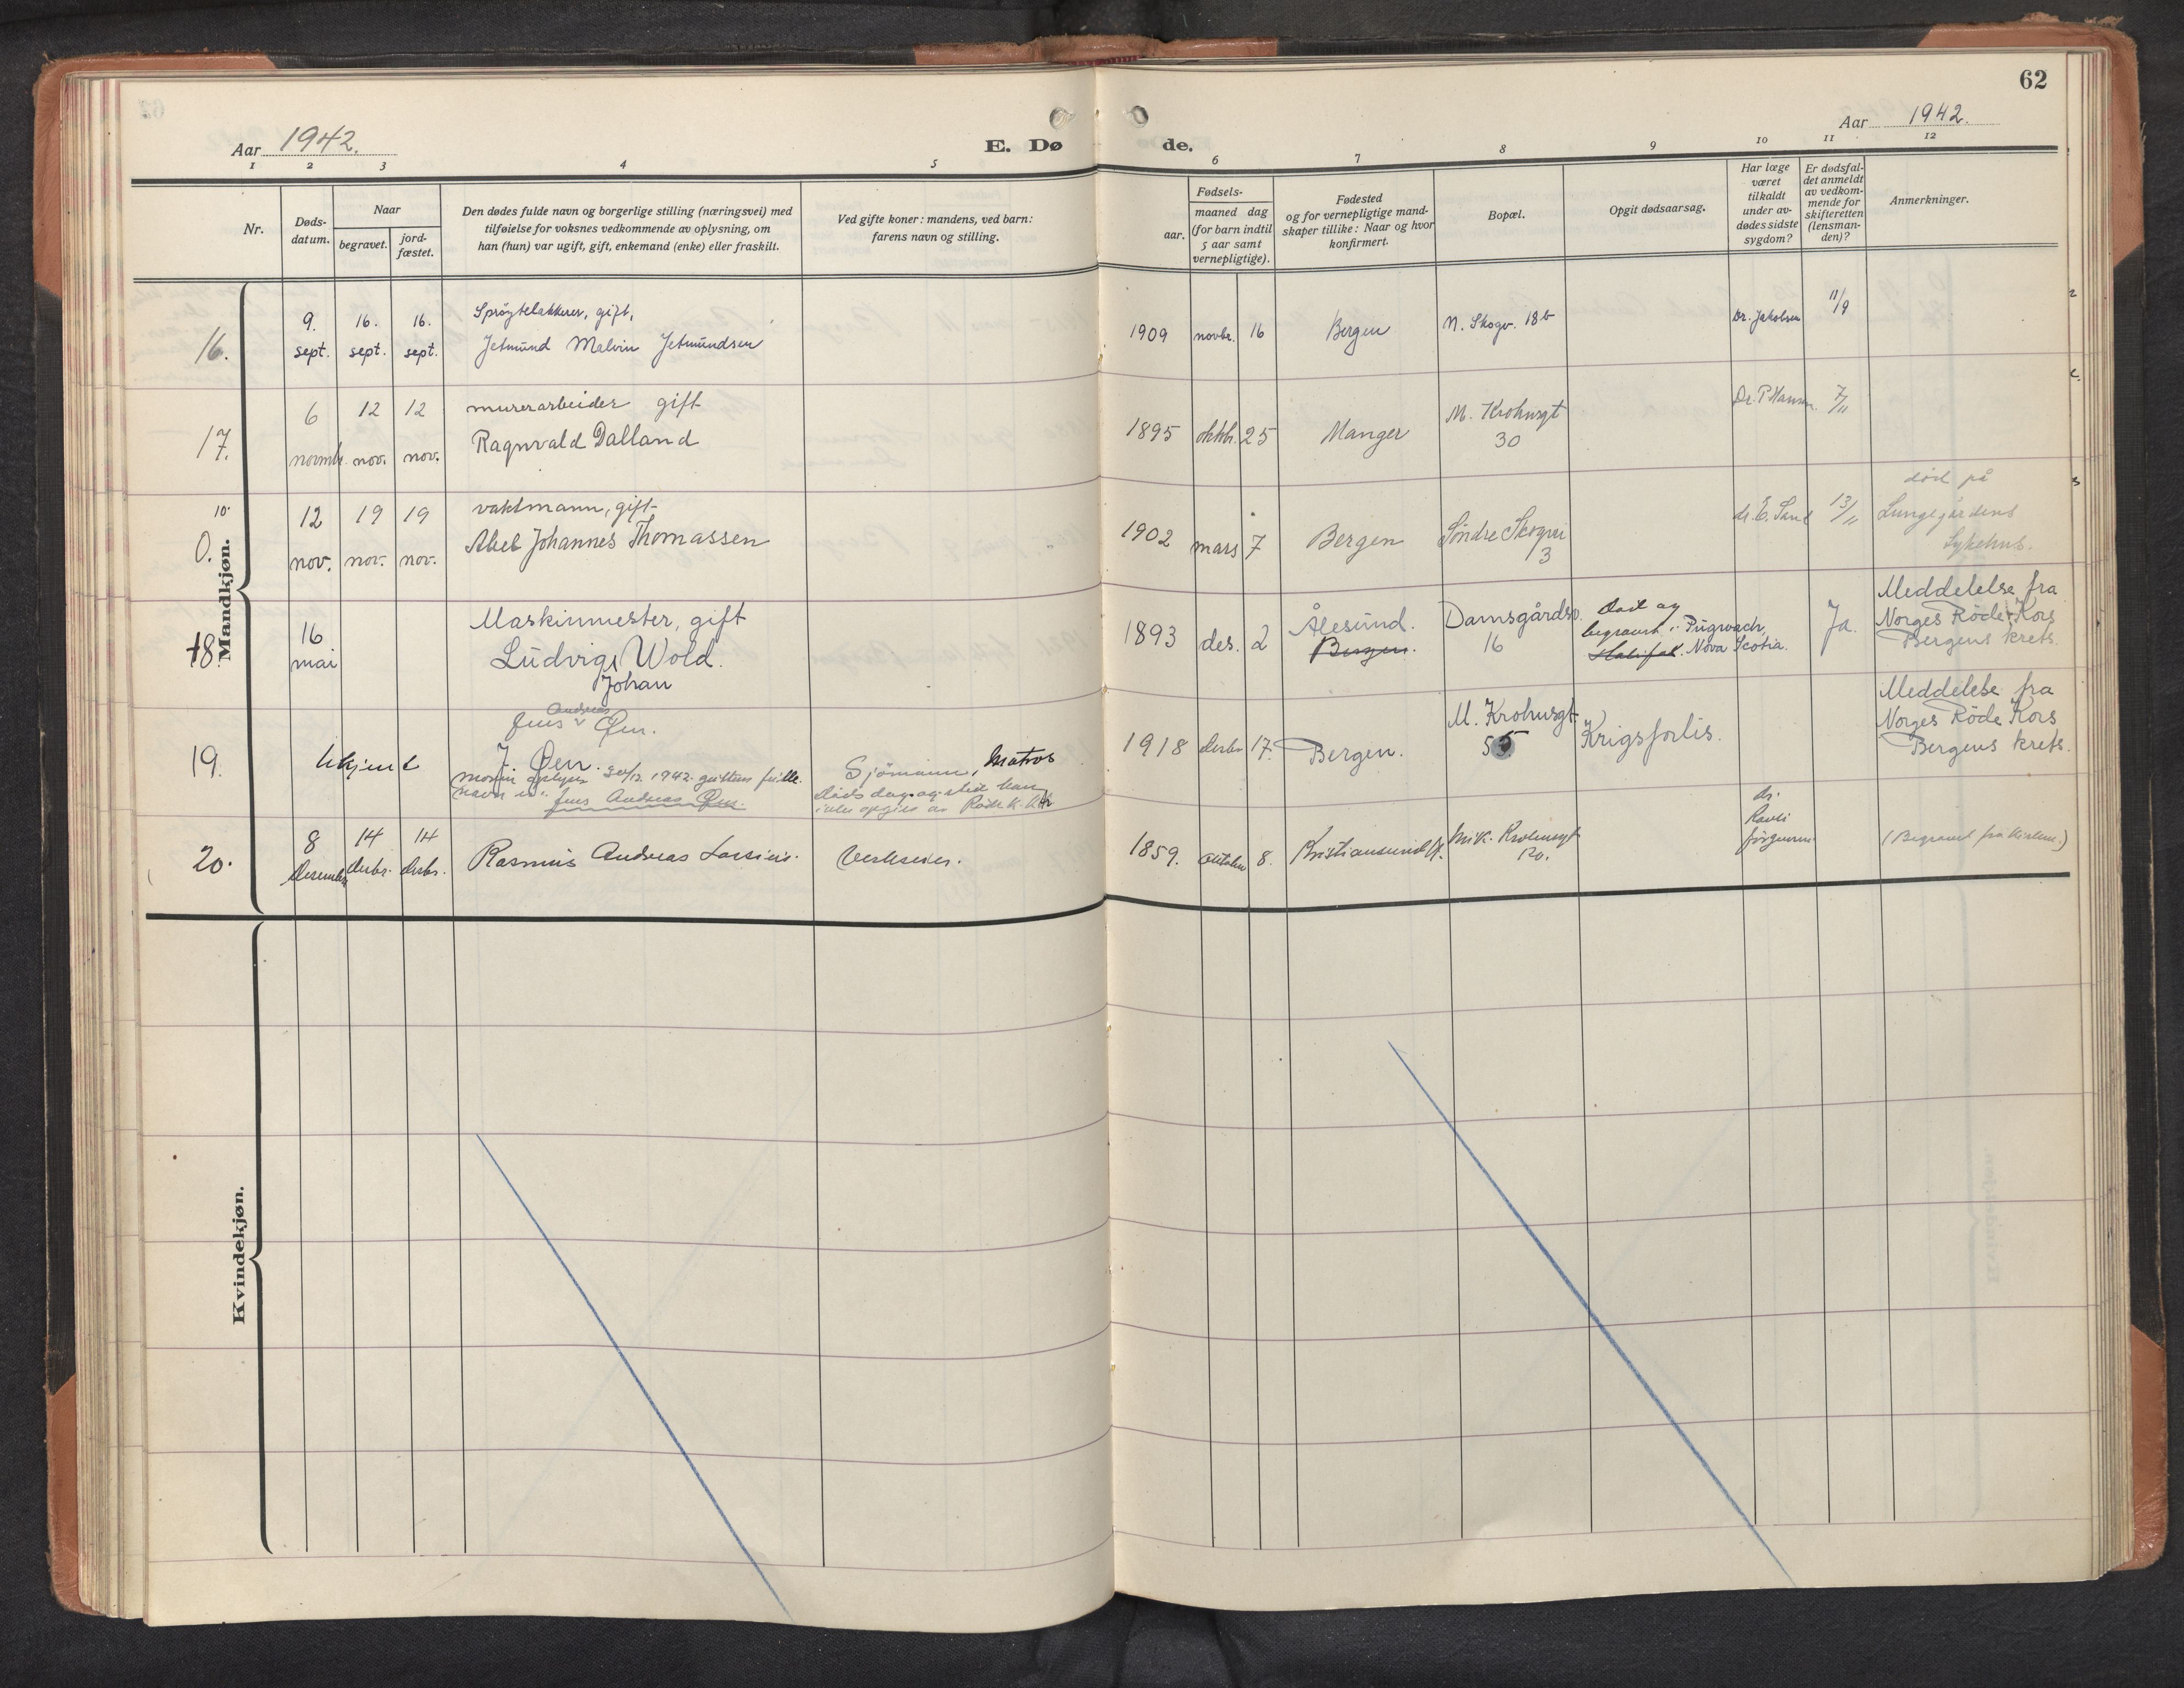 62
Aar 1942.
E. Døde.
Aar 1942.
1 2 3 4 5 6 7 8 9 10 11 12
Nr.
Døds-
datum.
Naar
begravet.
jord-
fæstet.
Den dødes fulde navn og borgerlige stilling (næringsvei) med
tilføielse for voksnes vedkommende av oplysning, om
han (hun) var ugift, gift, enkemand (enke) eller fraskilt.
Ved gifte koner: mandens, ved barn:
farens navn og stilling.
Fødsels-
aar.
maaned dag
(for barn indtil
5 aar samt
vernepligtige).
Fødested
og for vernepligtige mand-
skaper tillike: Naar og hvor
konfirmert.
Bopæl.
Opgit dødsaarsag.
Har læge
været
tilkaldt
under av-
dødes sidste
sygdom?
Er dødsfal-
det anmeldt
av vedkom-
mende for
skifteretten
(lensman-
den)?
Anmerkninger.
Mandkjøn.
16.
9. sept.
16. sept.
16. sept.
Sprøytelakkerer, gift,
Jetmund Malvin Jetmundsen
1909 novbr. 16
Bergen
N. Skogv. 18b
Dr. Jakobsen
11/9
17.
6 novmbr.
12 nov.
12 nov.
murerarbeider gift
Ragnvald Dalland
1895 oktb. 25
Manger
M. Krohnsgt
30
Dr. P. Hansen
7/11
10.
0.
12 nov.
19 nov.
19 nov.
vaktmann, gift
Abel Johannes Thomassen
1902 mars 7
Bergen
Søndre Skogvei
3
dr. E. Sand
13/11
død på
Lungegårdens
Sykehus.
18.
16 mai
Maskinmester, gift
Ludvig Wold.
Johan
1893 des. 2
Ålesund.
Bergen.
Damsgårdsv.
16
Død og
begravet i Pugwach,
Halifax. Nova Scotia.
Ja.
Meddelelse fra
Norges Røde Kors
Bergens krets.
19.
Ukjent
Andreas
Jens Øen.
J. Øen.
moren oplyser 30/12 1942 guttens fulle
navn er: Jens Andreas Øen.
Sjømann, Matros
Døds dag og sted kan
ikke opgies av Røde K.
1918 desbr 17.
Bergen.
M. Krohnsgt.
55
Krigsforlis.
Meddelelse fra
Norges Røde Kors
Bergens krets.
20.
8 Desember
14 desbr.
14 desbr.
Rasmus Andreas
Verkseier.
1859. oktober 8.
Kristiansund N.
Mik. Krohnsgt
120.
dr.
(Begravet fra kirken.)
Kvindekjøn.